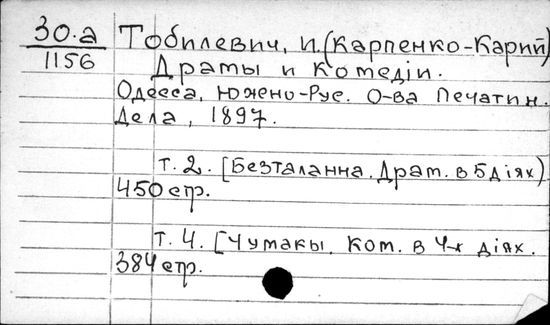 30.а
1156
Тобилевич, И. (Карпенко-Карий)
Драты и Котедіи.
Одесса, Южено-Рус. О-ва Печатин.
Дела, 1897.
т. 2. [Безталанна. Драт. в 5 діях)
450 стр.
т. 4. [Чумакы. Ком. в 4-х діях.
384 стр.